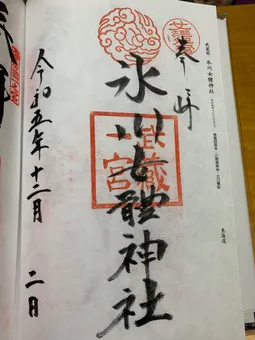 武蔵國 氷川女體神社
奉拝
氷川女體神社
武蔵
一宮
令和五年十二月 二日
東海道